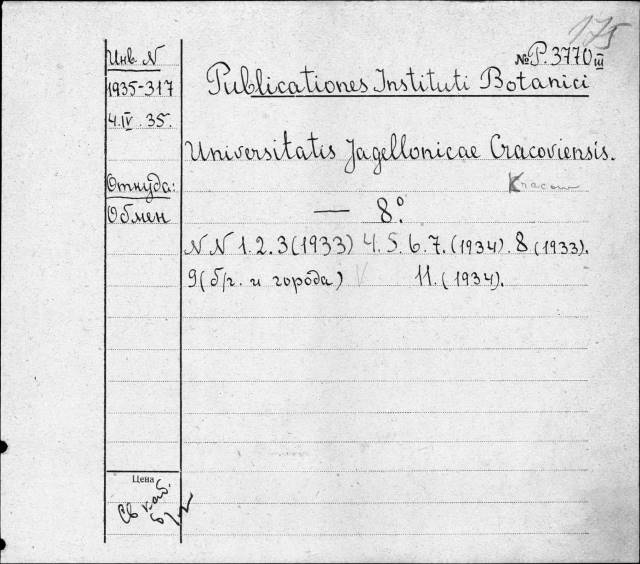 175
Инв. N
№ P. 3770 III
Publicationes Instituti Botanici
1935-317
4.IV.35.
Universitatis Jagellonicae Cracoviensis.
Откуда:
Обмен
— 8°.
N N 1. 2. 3 (1933) 4. 5. 6. 7. (1934). 8 (1933).
9 (б/г. и города) V 11. (1934).
Цена
Св